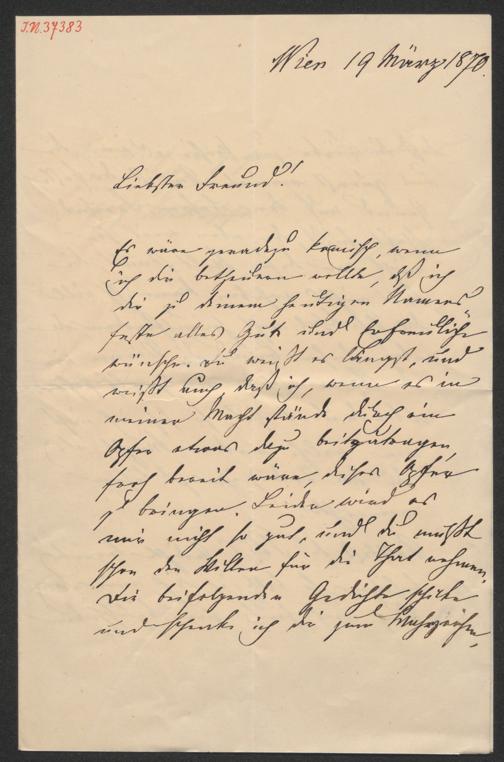 I.N. 37383
Wien 19 März 1870.
Liebster Freund!
Es wäre geradezu komisch, wenn
ich dir betheuern wollte, daß ich
dir zu deinem heutigen Namens
feste alles Gute und Erfreuliche
wünsche. Du weißt es längst, und
weißt auch daß ich, wenn es in
meiner Macht stände durch ein
Opfer etwas dazu beizutragen,
froh bereit wäre, dieses Opfer
zu bringen. Leider wird es
mir nicht so gut, und du mußt
schon den Willen für die That nehmen.
Die beifolgenden Gedichte schicke
und schenke ich dir zum